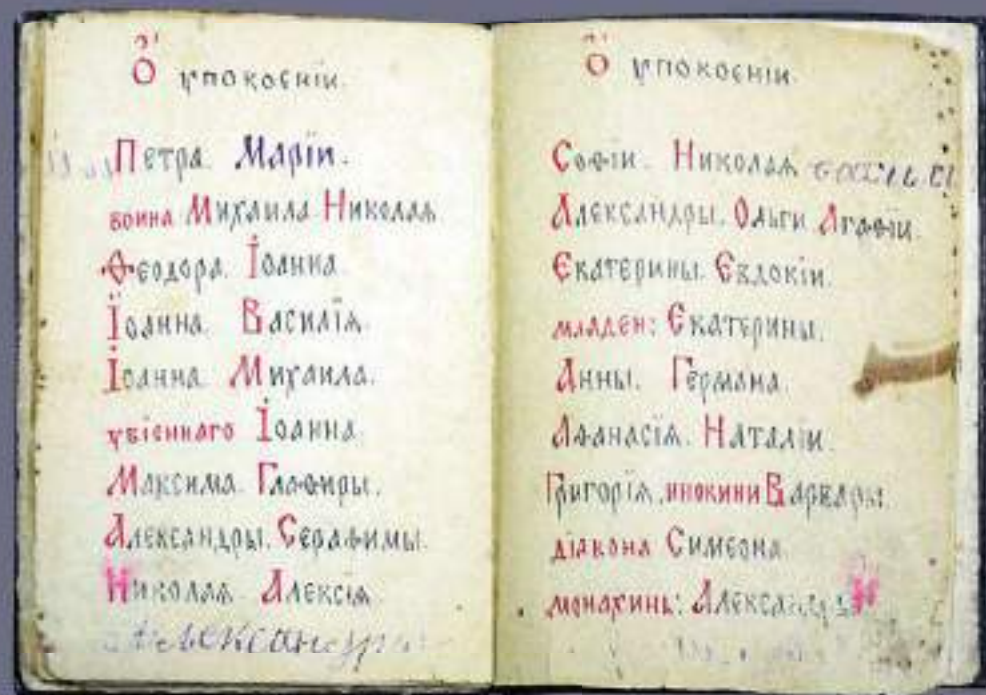 Ѻ упокоеніи.
Петра. Маріи.
воина Михаила Николаѧ
Ѳеодора. Іоанна.
Іоанна. Василїѧ.
Іоанна. Михаила.
убіеннаго Іоанна.
Максима. Глафиры.
Александры. Серафимы.
Николаѧ. Алексїѧ
Александры
Ѻ упокоеніи.
Софіи. Николаѧ
Александры. Ольги. Агафїи.
Екатерины. Евдокіи.
младен: Екатерины.
Анны. Германа.
Аѳанасїѧ. Наталіи.
Григорїѧ. инокини Варвары.
дїакона Симеона.
монахинь: Александры